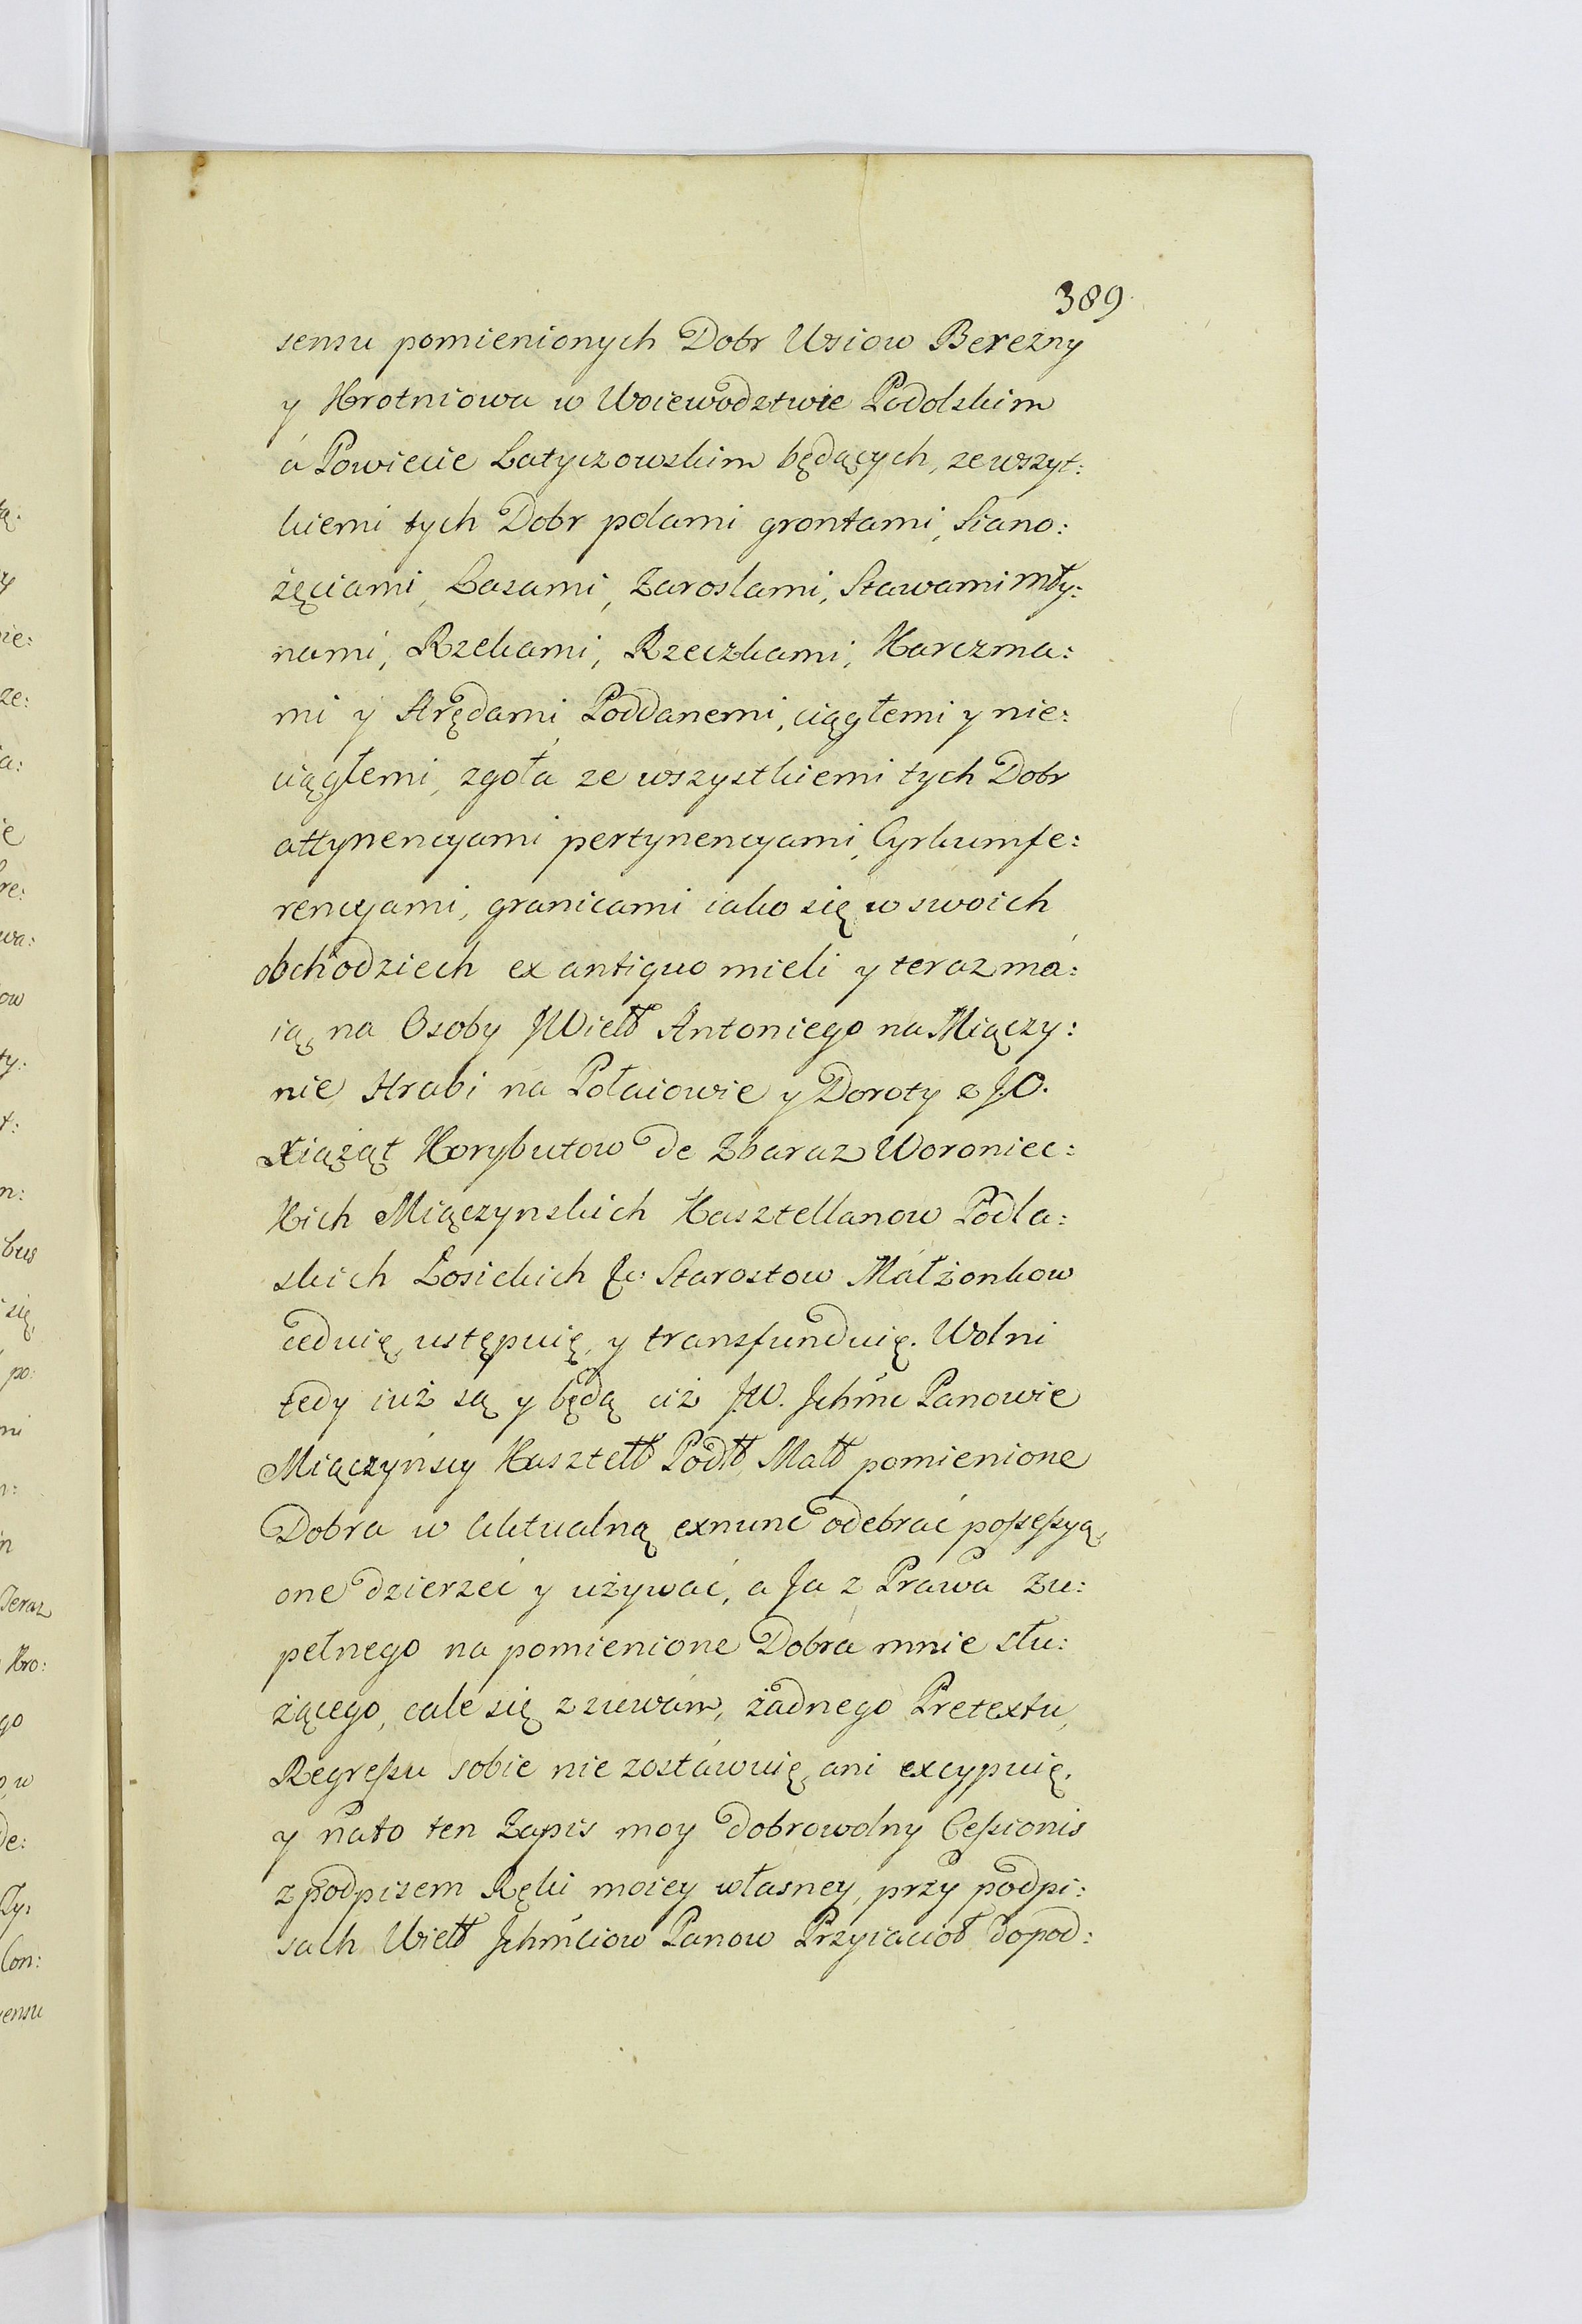 389
sensu pomienionych Dobr Wsiow Berezny
y Krotniowa w Woiewodztwie Podolskim
á Powiecie Latyczowskim będących, ze wszyt:
kiemi tych Dobr polami grontami, Siano:
żęciami, Lasami, Zaroslami, Stawami Mły:
nami, Rzekami, Rzeczkami, Karczma:
mi y Arędami, Poddanemi, ciągłemi y nie:
ciągłemi, zgoła ze wszystkiemi tych Dobr
attynencyami pertynencyami, Cyrkumfe:
rencyami, granicami iako się w swoich
obchodziech ex antiquo mieli y teraz má:
ią, na Osoby JWiellº Antoniego na Miączy:
nie Hrabi na Połaiowie y Doroty z J.O.
Xiążąt Korybutow de Zbaraz Woroniec:
Kich Miączynskich Kasztellanow Podla:
skich Łosickich &c: Starostow Małżonkow
ceduię, ustępuię, y transfunduię. Wolni
tedy iuż są y będą ciż J.W. Jchmć Panowie
Miączyńscy Kasztellº Podlº, Małº pomienione
Dobra w Aktualną exnunc odebrać possessyą,
one dzierzeć y używać, a Ja z Prawa zu:
pełnego na pomienione Dobra mnie słu:
żącego, cale się zzuwám, żadnego Pretextu,
Regressu sobie nie zostáwuię, ani excypuię.
y náto ten Zapis moy dobrowolny Cessionis
z podpisem Ręki moiey własney, przy podpi:
sach Wiellº Jchmćiow Panow Przyiacioł do pod: